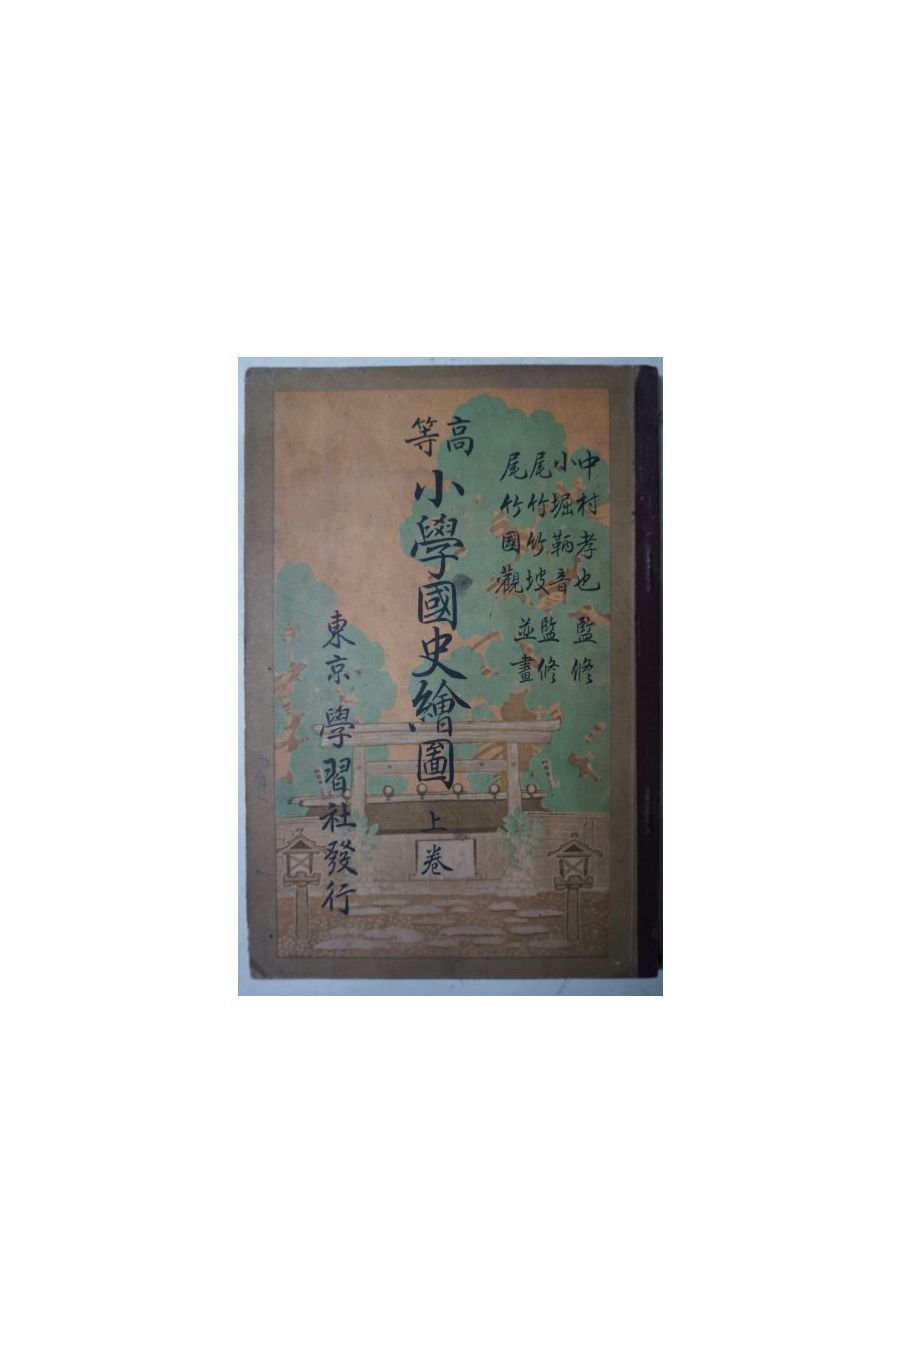 中村孝也 監修
小堀鞆音 監修
尾竹竹坡
尾竹國觀 並畫
高等
小學國史繪圖 上卷
東京 學習社發行